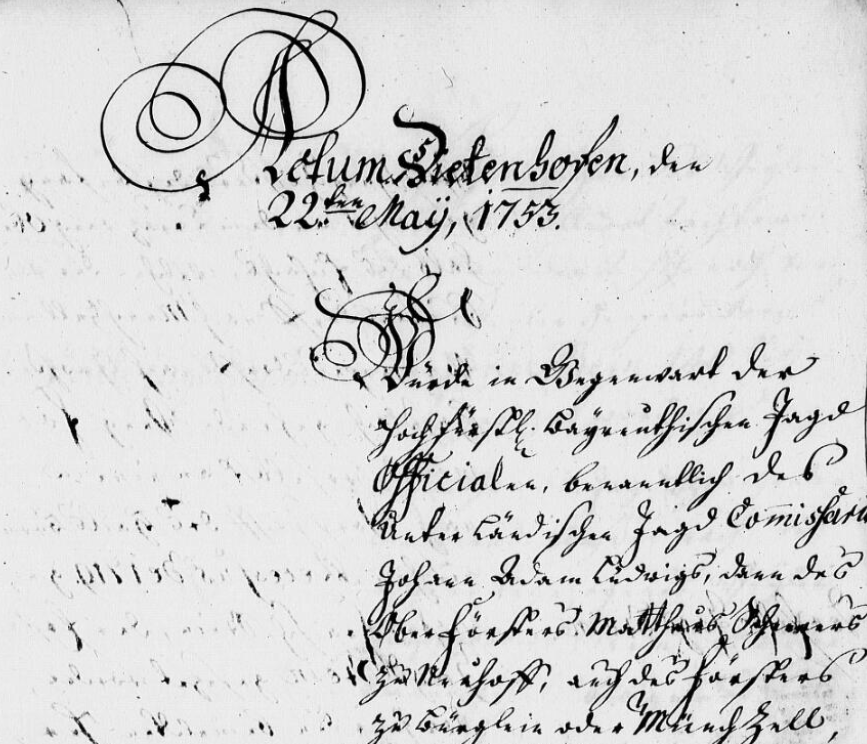 Actum Dietenhofen, den
22.ten Maÿ, 1753.
Wurde in Gegenwart der
Hochfürstl. Bayreuthischen Jagd
Officialen, benanntlich des
Unterländischen Jagd Commissarii
Johann Adam Ludwigs, dann des
Ober Försters Matthaeus
zu Neuhoff, auch des Försters
zu Bürglein oder Münch Zell,